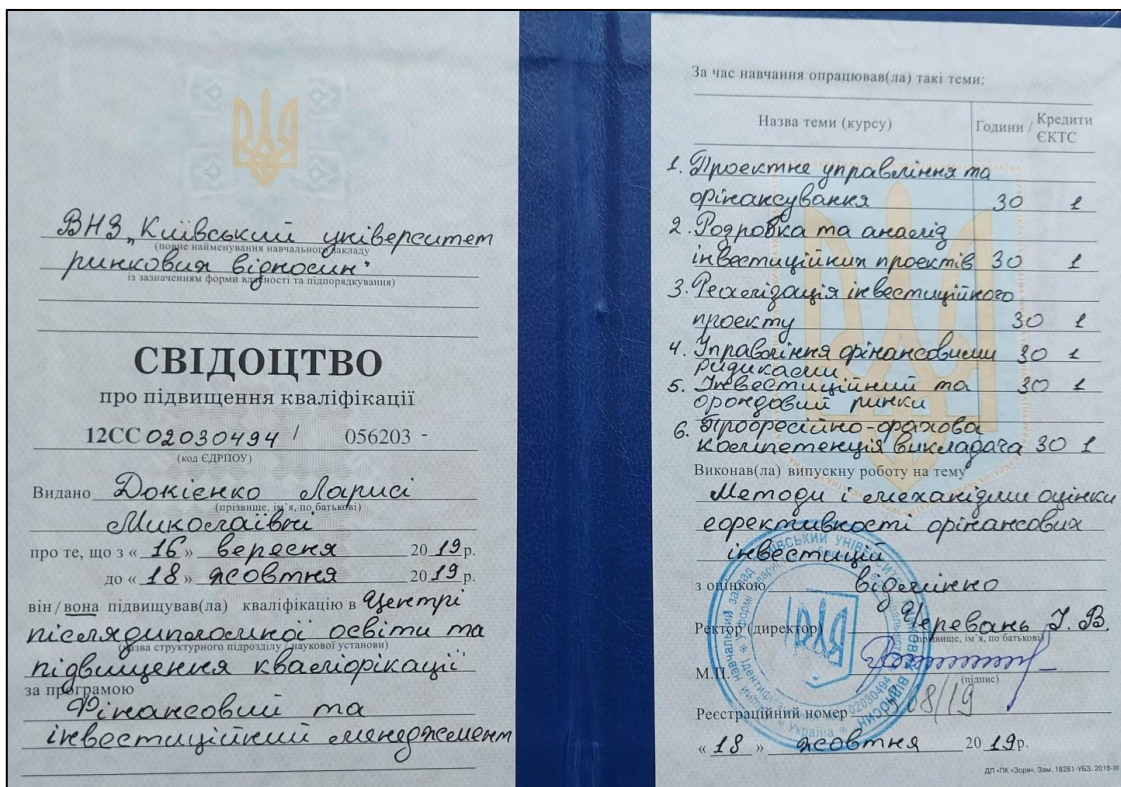 ВНЗ „Київський університет
(повне найменування навчального закладу
ринкових відносин"
із зазначенням форми власності та підпорядкування)
СВІДОЦТВО
про підвищення кваліфікації
12СС 02030494 / 056203 -
(код ЄДРПОУ)
Видано Докієнко Ларисі
(прізвище, ім'я, по батькові)
Миколаївні
про те, що з « 16 » вересня 2019 р.
до « 18 » жовтня 2019 р.
він / вона підвищував(ла) кваліфікацію в Центрі
післядипломної освіти та
(назва структурного підрозділу / наукової установи)
підвищення кваліфікації
за програмою
Фінансовий та
інвестиційний менеджмент
За час навчання опрацював(ла) такі теми:
Назва теми (курсу) Години / Кредити ЄКТС
1. Проектне управління та
фінансування 30 1
2. Розробка та аналіз
інвестиційних проектів 30 1
3. Реалізація інвестиційного
проекту 30 1
4. Управління фінансовими 30 1
ризиками
5. Інвестиційний та 30 1
фондовий ринки
6. Професійно-фахова
компетенція викладача 30 1
Виконав(ла) випускну роботу на тему
Методи і механізми оцінки
ефективності фінансових
інвестицій
з оцінкою відмінно
Ректор (директор) Черевань І. В.
(прізвище, ім'я, по батькові)
М.П.
(підпис)
Реєстраційний номер 08/19
« 18 » жовтня 2019р.
ДП «ПК «Зоря». Зам. 18281-УБЗ. 2018-III